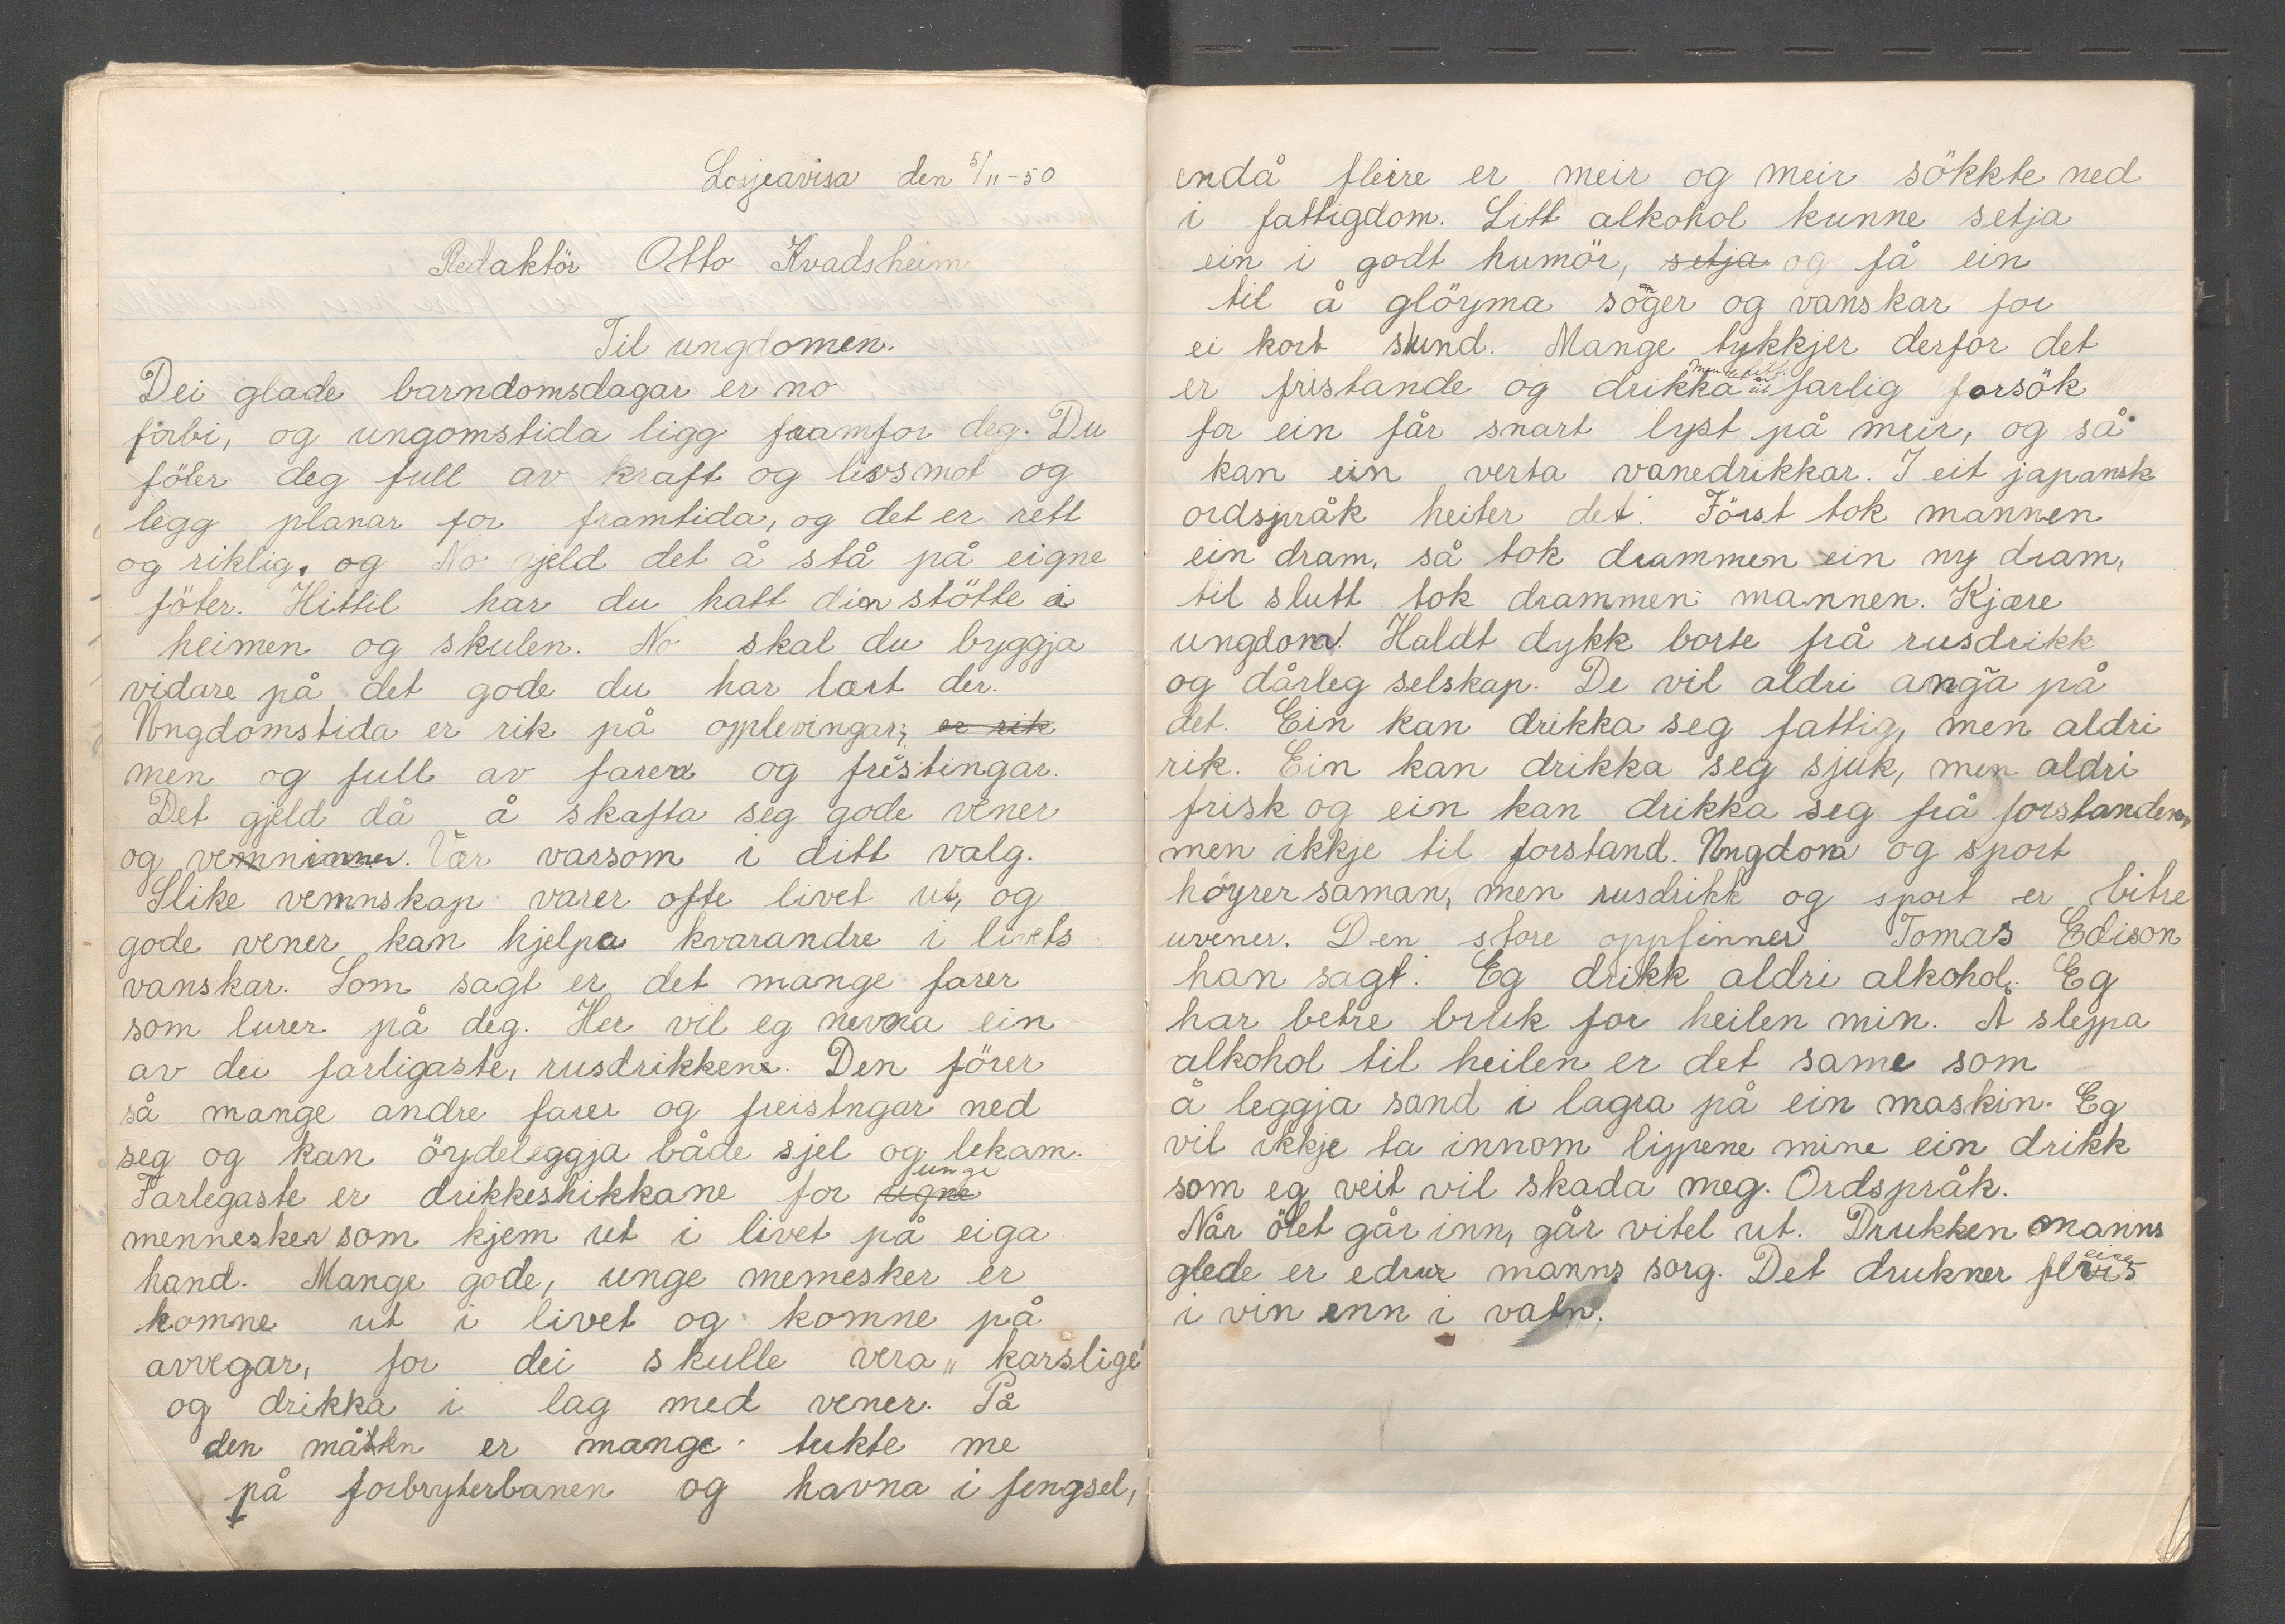 Losjeavisa den 5/11-50
Redaktör Otto Kvadsheim
Til ungdomen.
Dei glade barndomsdagar er no
forbi, og ungomstida ligg framfor deg. Du
föler deg full av kraft og livsmot og
legg planar for framtida, og det er rett
og riktig. og No gjeld det å stå på eigne
föter. Hittil har du hatt din stötte i
heimen og skulen. No skal du byggja
vidare på det gode du har lært der.
Ungdomstida er rik på opplevingar; er rik
men og full av farer og fristingar.
Det gjeld då å skaffa seg gode vener
og venninner. Vær varsom i ditt valg.
Slike vennskap varer ofte livet ut, og
gode vener kan hjelpa kvarandre i livets
vanskar. Som sagt er det mange farer
som lurer på deg. Her vil eg nevna ein
av dei farligaste, rusdrikken. Den förer
så mange andre farer og freistngar ned
seg og kan öydeleggja både sjel og lekam.
Farlegaste er drikkeskikkane for ugne unge
mennesker som kjem ut i livet på eiga
hand. Mange gode, unge memesker er
komne ut i livet og komne på
avvegar, for dei skulle vera „karslige"
og drikka i lag med vener. På
den måtn er mange lukte me
på forbryterbanen og havna i fengsel,
endå fleire er meir og meir sökkte ned
i fattigdom. Litt alkohol kunne setja
ein i godt humör, setja og få ein
til å glöyma söger og vanskar for
ei kort stund. Mange tykkjer derfor det
er fristande og drikka farlig forsök
for ein får snart lyst på meir, og så
kan ein verta vanedrikkar. I eit japansk
ordspråk heiter det: Först tok mannen
ein dram, så tok drammen ein ny dram,
til slutt tok drammen mannen. Kjære
ungdom! Haldt dykk borte frå rusdrikk
og dårleg selskap. De vil aldri angra på
det. Ein kan drikka seg fattig, men aldri
rik. Ein kan drikka seg sjuk, men aldri
frisk og ein kan drikka seg frå forstanden,
men ikkje til forstand. Ungdom og sport
höyrer saman, men rusdrikk og sport er bitre
uvener. Den store oppfinner Tomas Edison
han sagt: Eg drikk aldri alkohol. Eg
har betre bruk for heilen min. Å sleppa
alkohol til heilen er det same som
å leggja sand i lagra på ein maskin. Eg
vil ikkje ta innom lippene mine ein drikk
som eg veit vil skada meg. Ordspråk.
Når ölet går inn, går vitel ut. Drukken manns
glede er edrur manns sorg. Det drukner fleire
i vin enn i vatn.